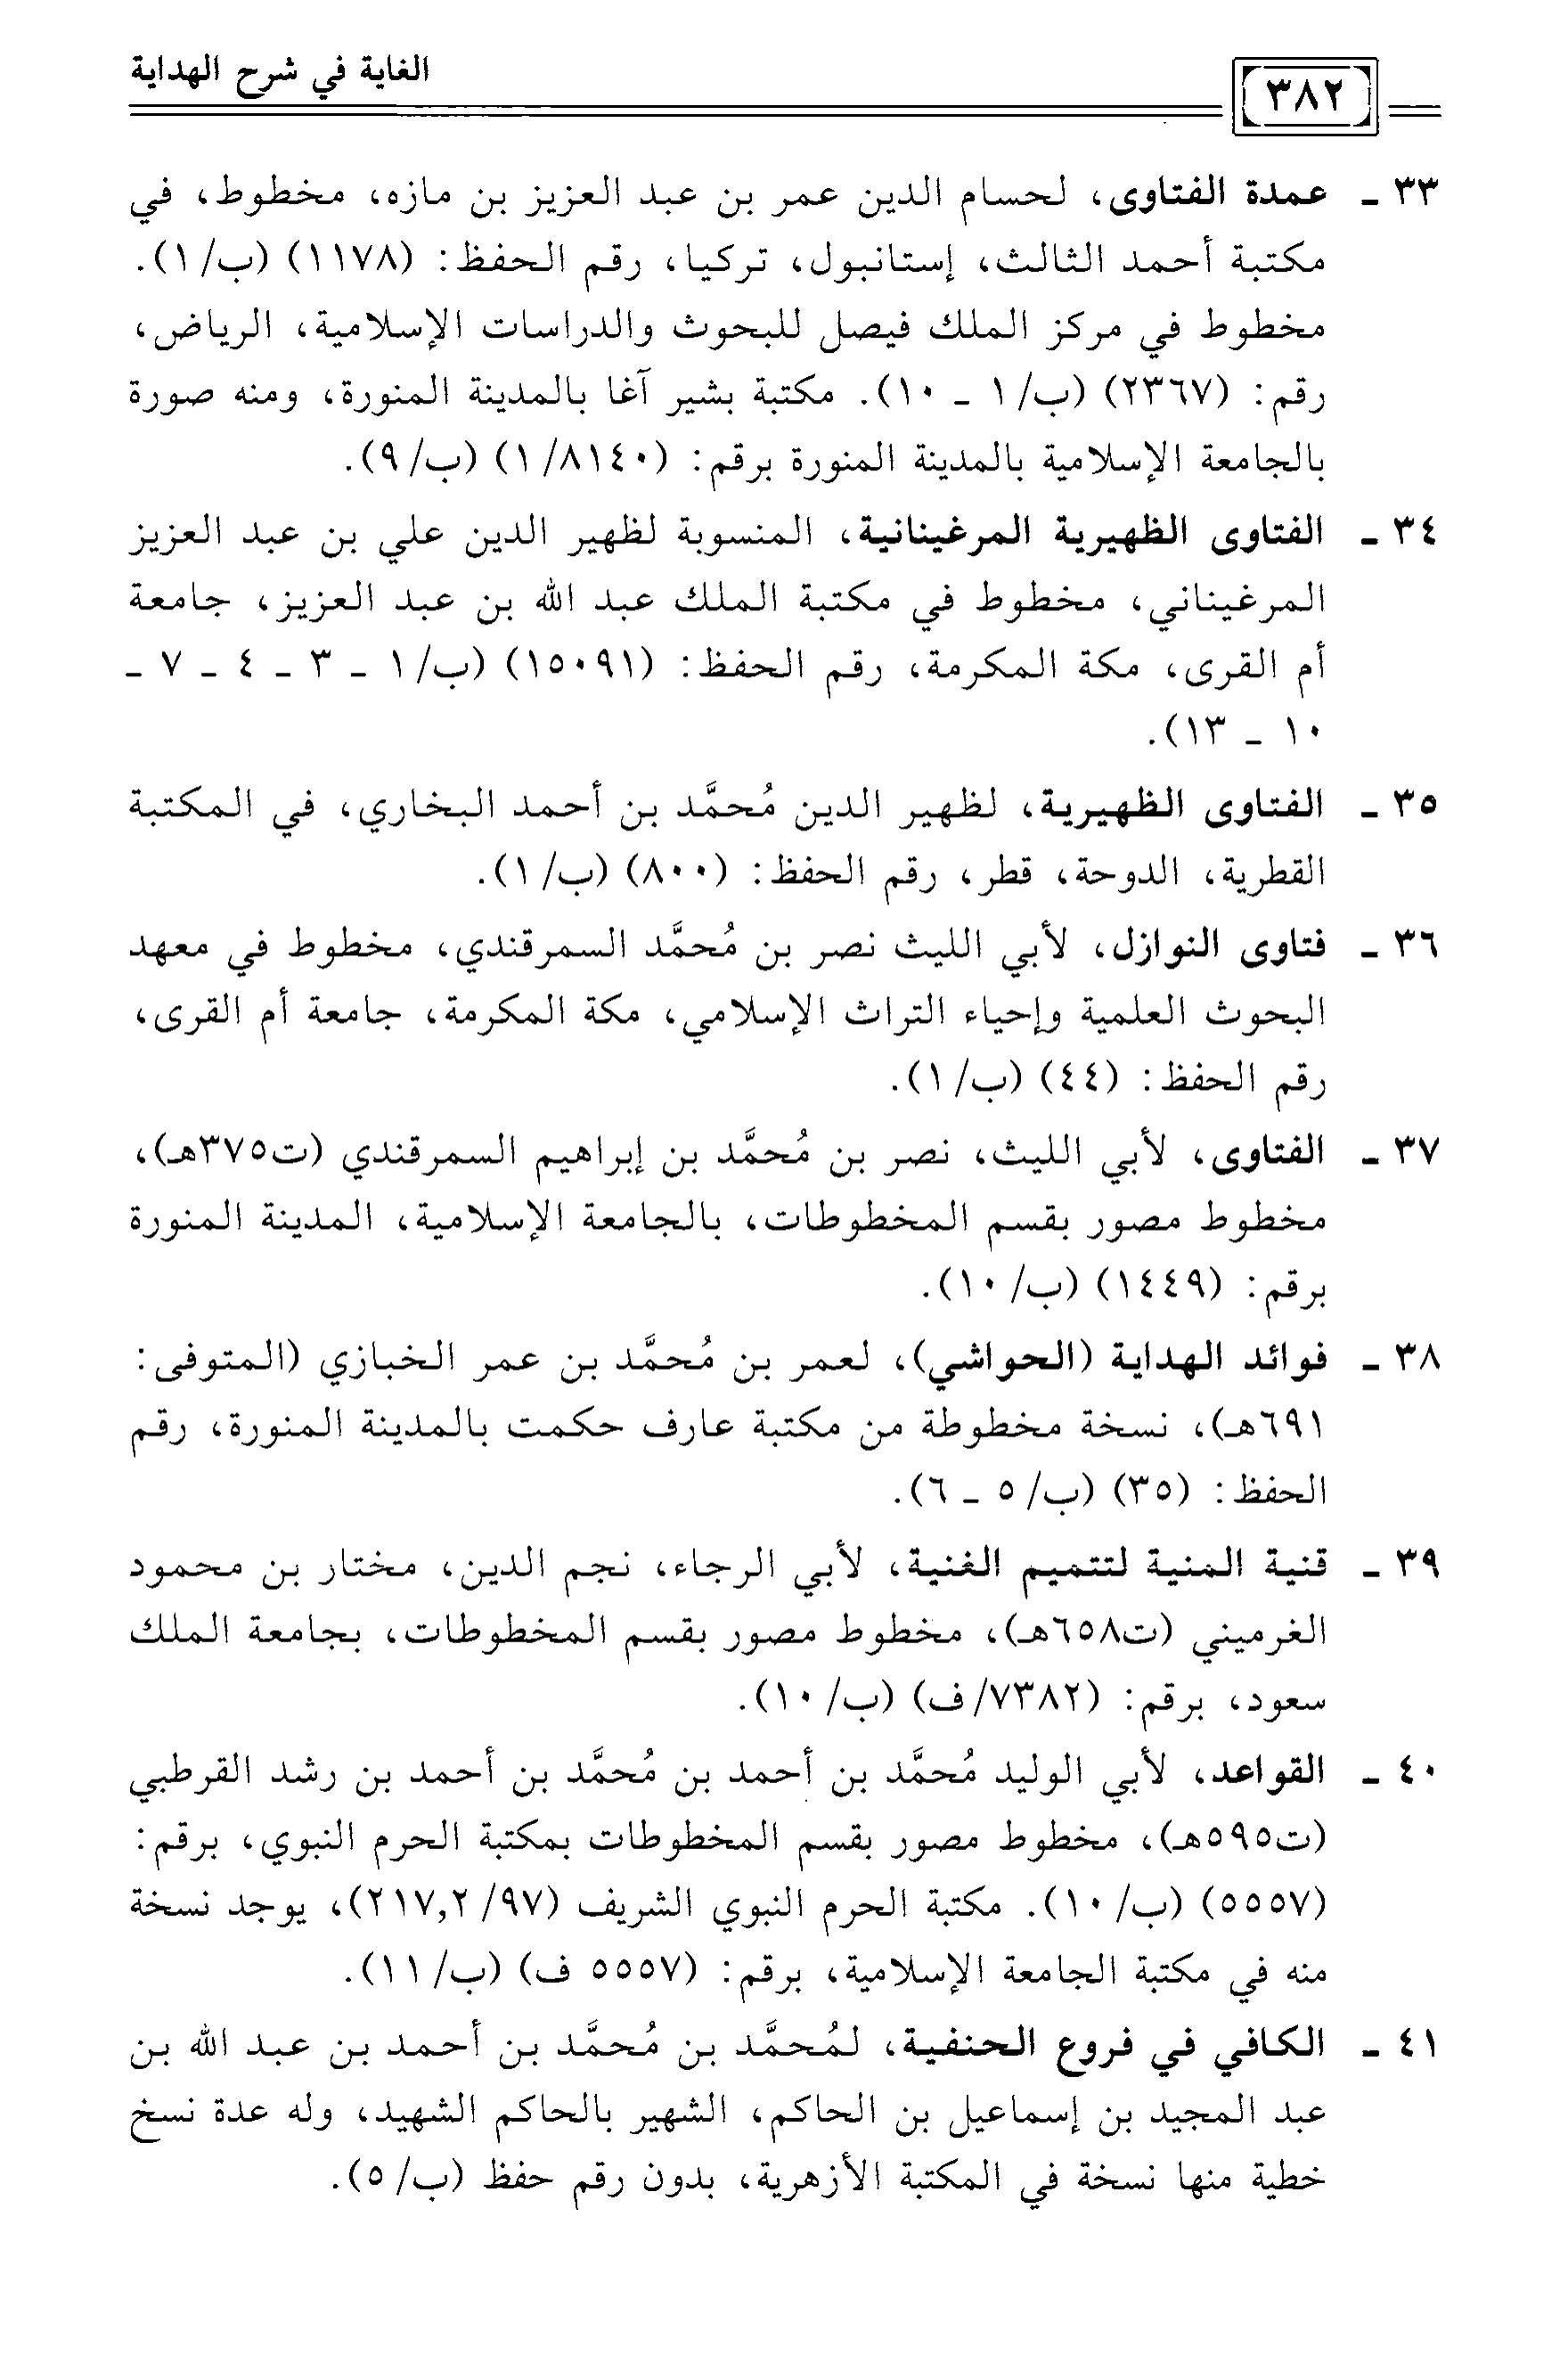 الغاية في شرح الهداية
٣٨٢
٣٣ ـ عمدة الفتاوى، لحسام الدين عمر بن عبد العزيز بن مازه، مخطوط، في
مكتبة أحمد الثالث، إستانبول، تركيا، رقم الحفظ: (١١٧٨) (ب/١).
مخطوط في مركز الملك فيصل للبحوث والدراسات الإسلامية، الرياض،
رقم: (٢٣٦٧) (ب/١ ـ ١٠). مكتبة بشير آغا بالمدينة المنورة، ومنه صورة
بالجامعة الإسلامية بالمدينة المنورة برقم: (١/٨١٤٠) (ب/٩).
٣٤ ـ الفتاوى الظهيرية المرغينانية، المنسوبة لظهير الدين علي بن عبد العزيز
المرغيناني، مخطوط في مكتبة الملك عبد الله بن عبد العزيز، جامعة
أم القرى، مكة المكرمة، رقم الحفظ: (١٥٠٩١) (ب/١ ـ ٣ ـ ٤ ـ ٧ ـ
١٠ ـ ١٣).
٣٥ ـ الفتاوى الظهيرية، لظهير الدين مُحمَّد بن أحمد البخاري، في المكتبة
القطرية، الدوحة، قطر، رقم الحفظ: (٨٠٠) (ب/١).
٣٦ ـ فتاوى النوازل، لأبي الليث نصر بن مُحمَّد السمرقندي، مخطوط في معهد
البحوث العلمية وإحياء التراث الإسلامي، مكة المكرمة، جامعة أم القرى،
رقم الحفظ: (٤٤) (ب/١).
٣٧ ـ الفتاوى، لأبي الليث، نصر بن مُحمَّد بن إبراهيم السمرقندي (ت٣٧٥هـ)،
مخطوط مصور بقسم المخطوطات، بالجامعة الإسلامية، المدينة المنورة
برقم: (١٤٤٩) (ب/١٠).
٣٨ ـ فوائد الهداية (الحواشي)، لعمر بن مُحمَّد بن عمر الخبازي (المتوفى:
٦٩١هـ)، نسخة مخطوطة من مكتبة عارف حكمت بالمدينة المنورة، رقم
الحفظ: (٣٥) (ب/٥ ـ ٦).
٣٩ ـ قنية المنية لتتميم الغنية، لأبي الرجاء، نجم الدين، مختار بن محمود
الغرميني (ت٦٥٨هـ)، مخطوط مصور بقسم المخطوطات، بجامعة الملك
سعود، برقم: (٧٣٨٢/ف) (ب/١٠).
٤٠ ـ القواعد، لأبي الوليد مُحمَّد بن أحمد بن مُحمَّد بن أحمد بن رشد القرطبي
(ت٥٩٥هـ)، مخطوط مصور بقسم المخطوطات بمكتبة الحرم النبوي، برقم:
(٥٥٥٧) (ب/١٠). مكتبة الحرم النبوي الشريف (٩٧/٢١٧,٢)، يوجد نسخة
منه في مكتبة الجامعة الإسلامية، برقم: (٥٥٥٧ ف) (ب/١١).
٤١ ـ الكافي في فروع الحنفية، لمُحمَّد بن مُحمَّد بن أحمد بن عبد الله بن
عبد المجيد بن إسماعيل بن الحاكم، الشهير بالحاكم الشهيد، وله عدة نسخ
خطية منها نسخة في المكتبة الأزهرية، بدون رقم حفظ (ب/٥).